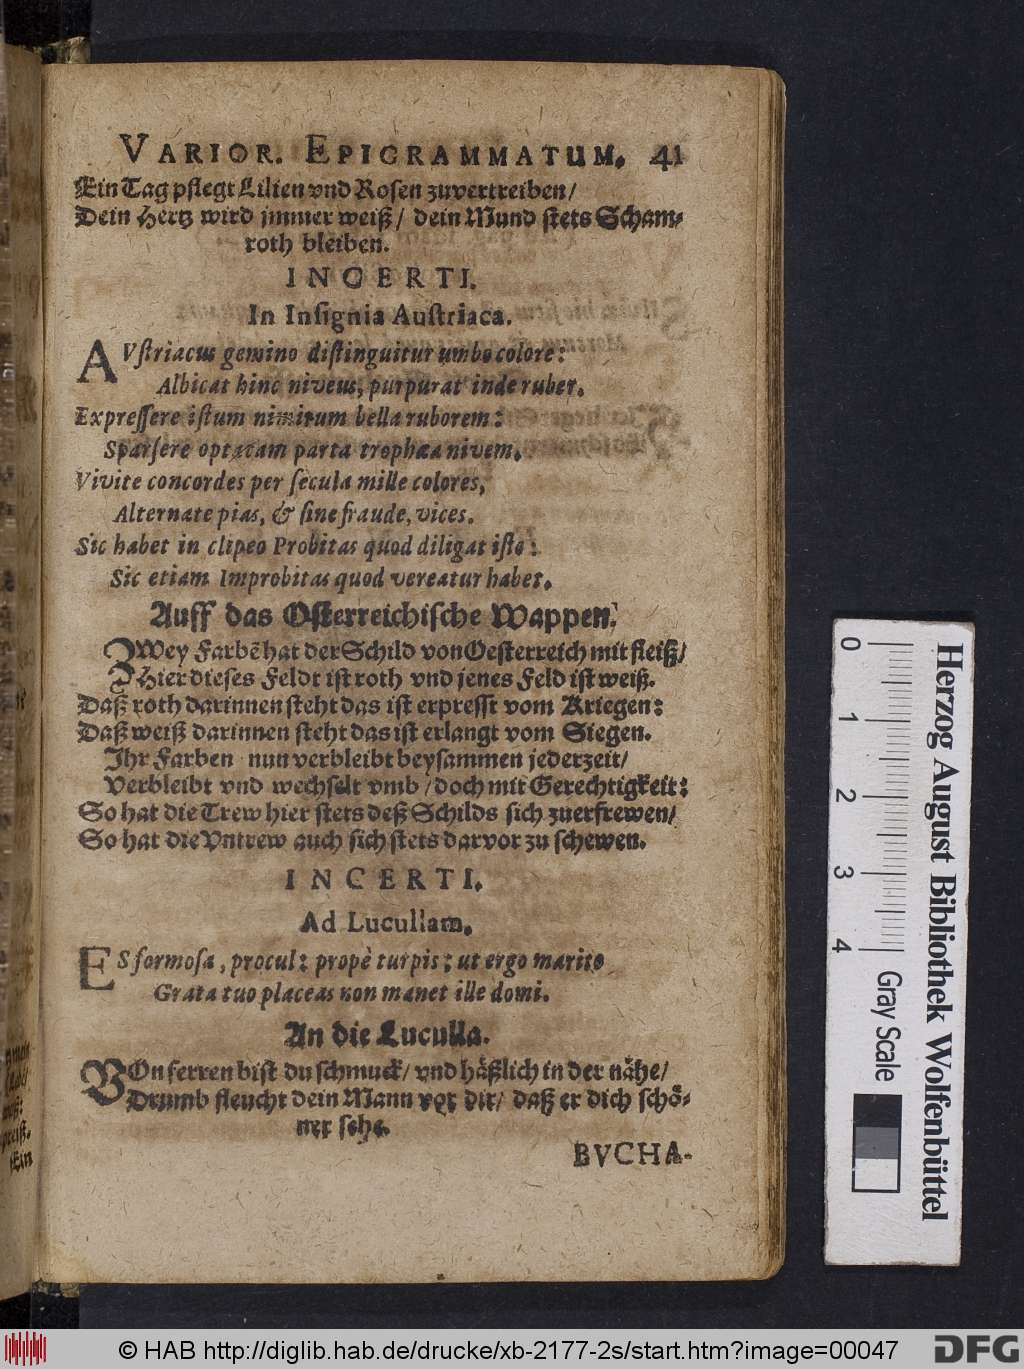 VARIOR. EPIGRAMMATUM. 41
Ein Tag pflegt Lilien vnd Rosen zuvertreiben/
Dein Hertz wird jmmer weiß/ dein Mund stets Scham-
roth bleiben.
INCERTI.
In Insignia Austriaca.
AVstriacus gemino distinguitur umbo colore:
Albicat hinc niveus, purpurat inde ruber.
Expressere istum nimirum bella ruborem:
Sparsêre optatam parta trophæa nivem.
Vivite concordes per secula mille colores,
Alternate pias, & sine fraude, vices.
Sic habet in clipeo Probitas quod diligat isto:
Sic etiam Improbitas quod vereatur habet.
Auff das Osterreichische Wappen.
ZWey Farbẽ hat der Schild von Oesterreich mit fleiß/
Hier dieses Feldt ist roth vnd jenes Feld ist weiß.
Daß roth darinnen steht das ist erpresst vom Kriegen:
Daß weiß darinnen steht das ist erlangt vom Siegen.
Jhr Farben nun verbleibt beysammen jederzeit/
Verbleibt vnd wechselt vmb/ doch mit Gerechtigkeit:
So hat die Trew hier stets deß Schilds sich zuerfrewen/
So hat die Vntrew auch sich stets darvor zu schewen.
INCERTI.
Ad Lucullam.
ES formosa, procul: propè turpis: ut ergo marito
Grata tuo placeas non manet ille domi.
An die Luculla.
VOn ferren bist du schmuck/ vnd häßlich in der nähe/
Drumb fleucht dein Mann vor dir/ daß er dich schö-
ner sehe.
BVCHA-
Herzog August Bibliothek Wolfenbüttel
0 1 2 3 4
Gray Scale
© HAB http://diglib.hab.de/drucke/xb-2177-2s/start.htm?image=00047
DFG